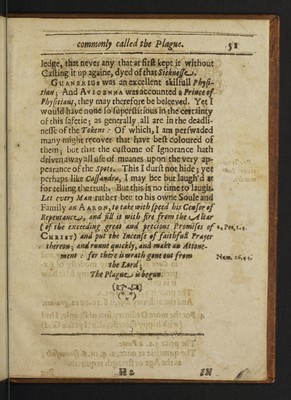 commonly called the Plague. 51
ledge, that never any that at first kept it without
Casting it up againe, dyed of that Sicknesse.
GUANERIUS was an excellent skilfull Physi-
tian; And AVICENNA was accounted a Prince of
Physitians, they may therefore be beleeved. Yet I
would have none so superstitious in the certainty
of this safetie; as generally all are in the deadli-
nesse of the Tokens: Of which, I am perswaded
many might recover that have best coloured of
them; but that the custome of Ignorance hath
driven away all use of meanes upon the very ap-
pearance of the Spots. This I durst not hide; yet
perhaps like Cassandra, I may bee but laugh'd at
for telling the truth. But this is no time to laugh.
Let every Man rather bee to his owne Soule and
Family as AARON, to take with speed his Censer of
Repentance, and fill it with fire from the Altar
(of the exceeding great and precious Promises of 2. Pet. 1. 4.
CHRIST) and put the Incense of faithfull Prayer
thereon; and runne quickly, and make an Attone-
ment: for there is wrath gone out from Num. 16. 46.
the Lord:
The Plague is begun.
H 2